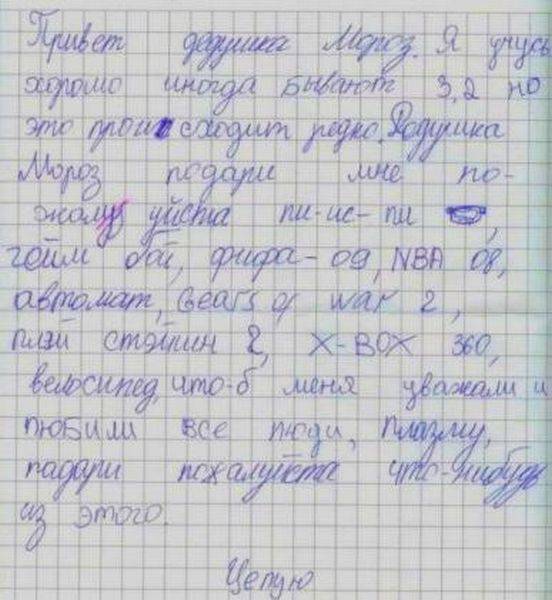 Привет дедушка Мороз. Я учусь
хорошо иногда бывают 3,2 но
это происходит редко. Дедушка
Мороз подари мне по-
жалуйста пи-ис-пи,
гейм бой, фифа-09, NBA 08,
автомат, Gears of war 2,
плэй стэйшин 2, X-BOX 360,
велосипед, что-б меня уважали и
любили все люди, плазму,
падари пожалуйста что-нибудь
из этого.
Целую